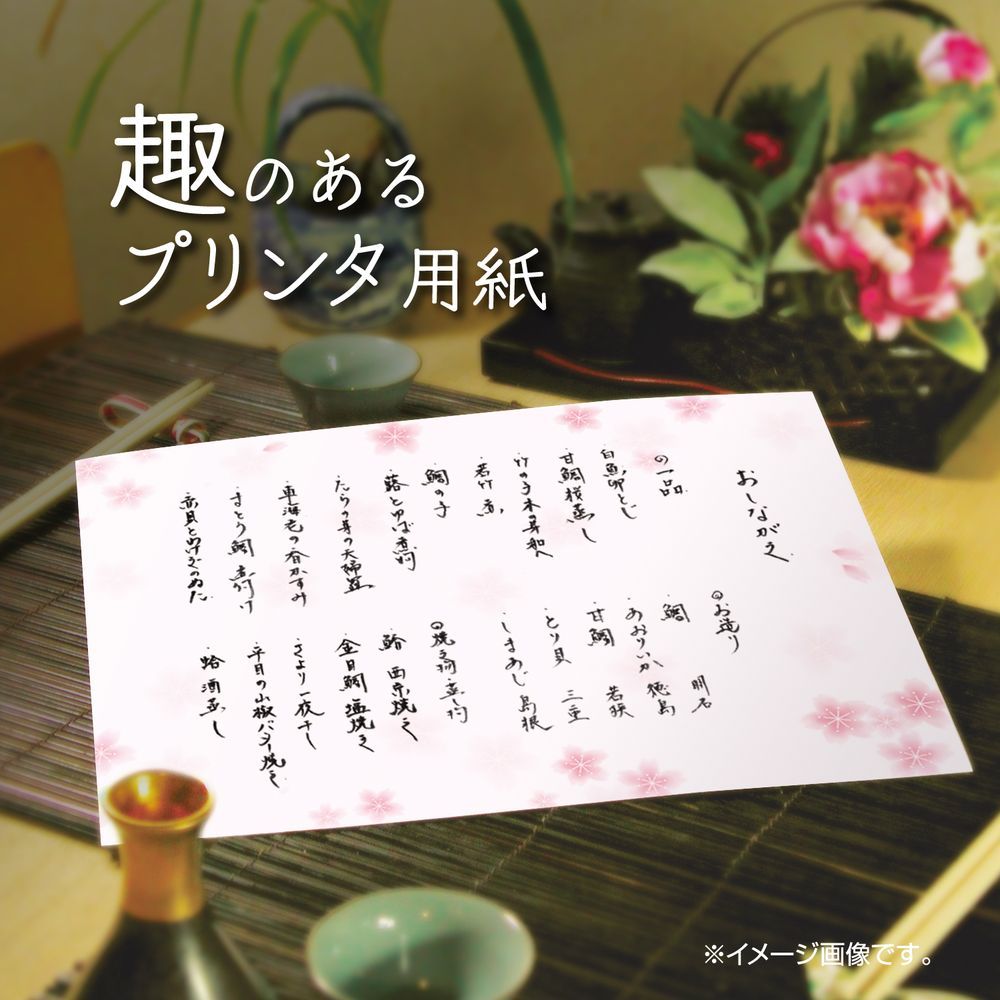 趣のある
プリンタ用紙
おしながき
の一品
白魚卵とじ
甘鯛桜蒸し
竹の子木の芽和へ
若竹煮
鯛の子
蕗とゆば煮付
たらの芽の天婦羅
車海老の香かすみ
さとう鯛煮付け
赤貝とわけぎのぬた
◎お造り
鯛 明石
あおりいか 徳島
甘鯛 若狭
とり貝 三重
しまあじ 島根
◎焼き物蒸し物
鰆 西京焼き
金目鯛塩焼き
さより一夜干し
平目の山椒バター焼き
蛤酒蒸し
※イメージ画像です。